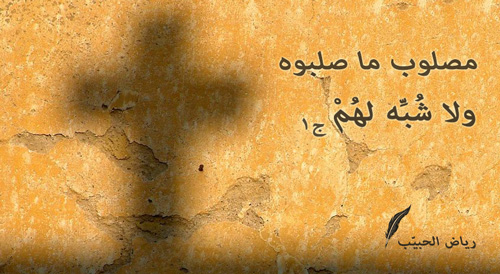 مصلوب ما صلبوه
ولا شُبِّه لهُمْ ج١
رياض الحبيّب